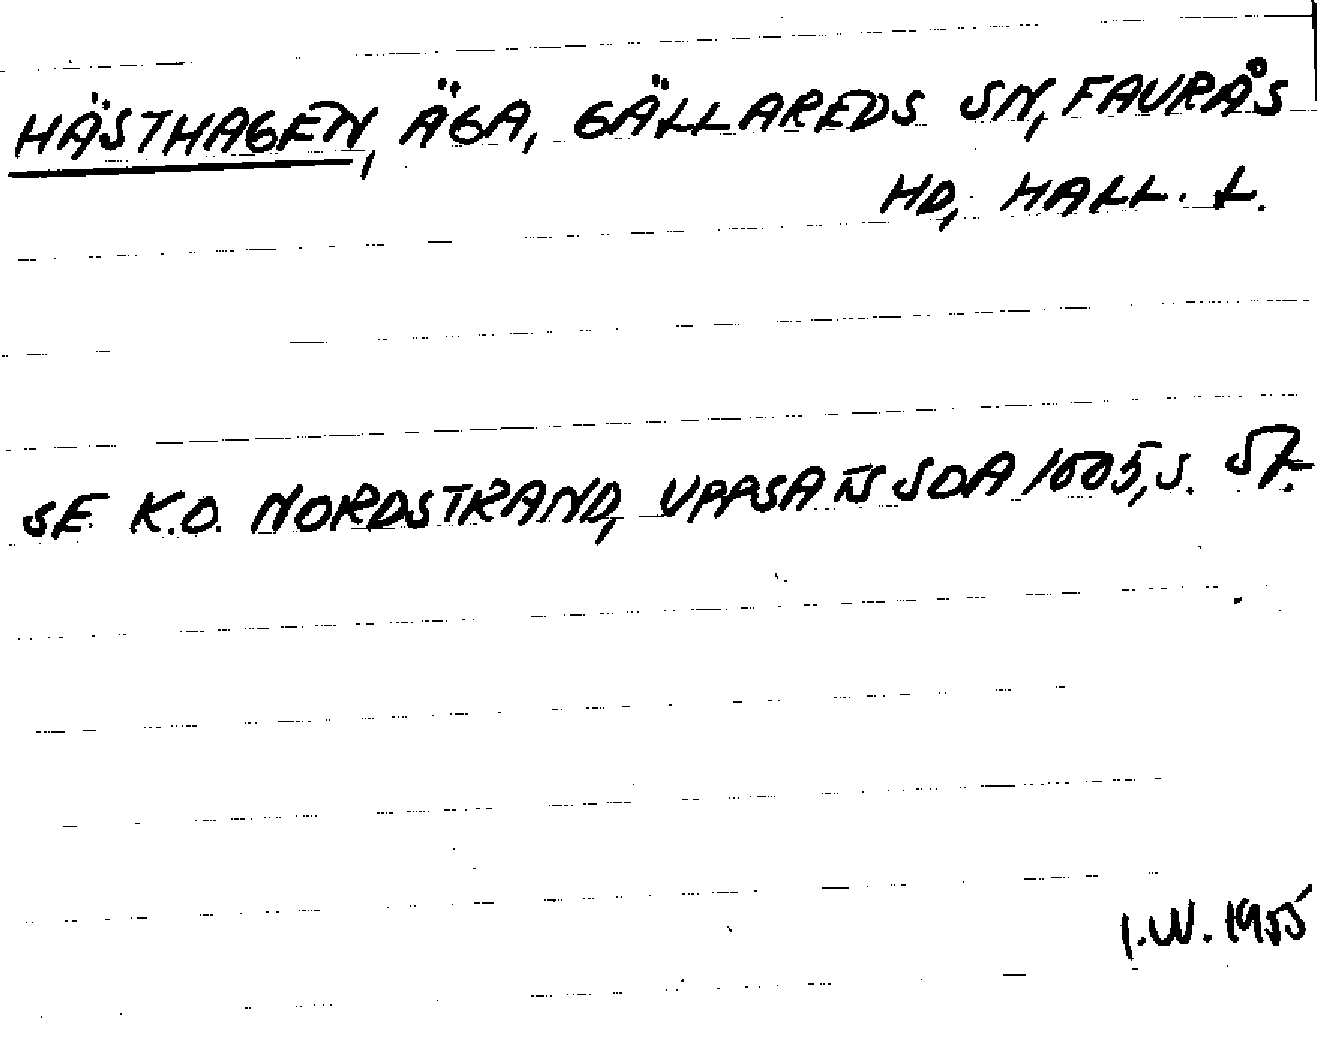 HÄSTHAGEN, ÄGA, GÄLLAREDS SN, FAURÅS
HD, HALL. L.
SE K.O. NORDSTRAND, UPPSATS SOA 1005, S. 57.
I.W. 1955